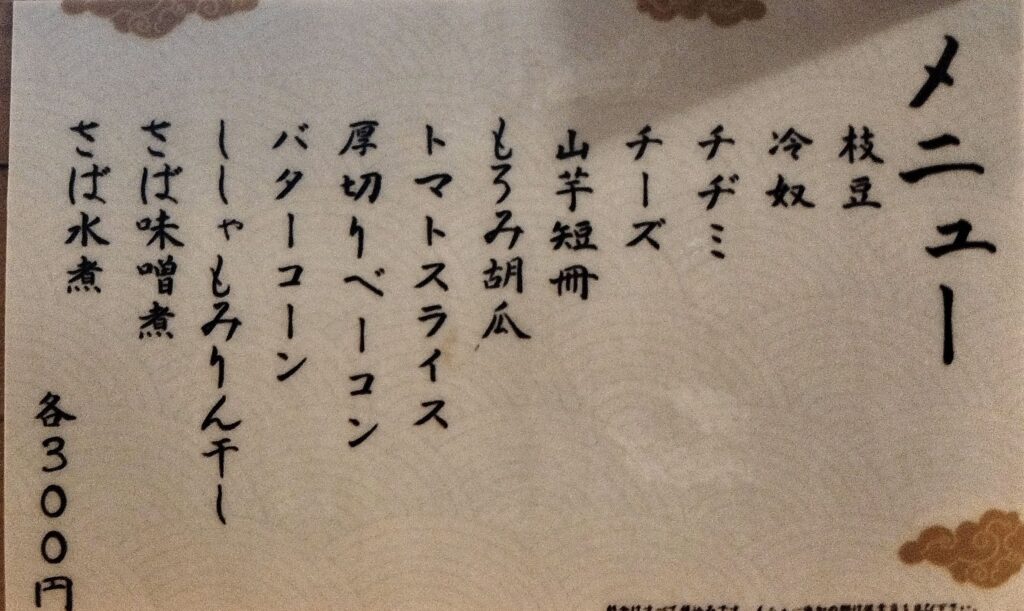 メニュー
枝豆
冷奴
チヂミ
チーズ
山芋短冊
もろみ胡瓜
トマトスライス
厚切りベーコン
バターコーン
ししゃもみりん干し
さば味噌煮
さば水煮
各300円